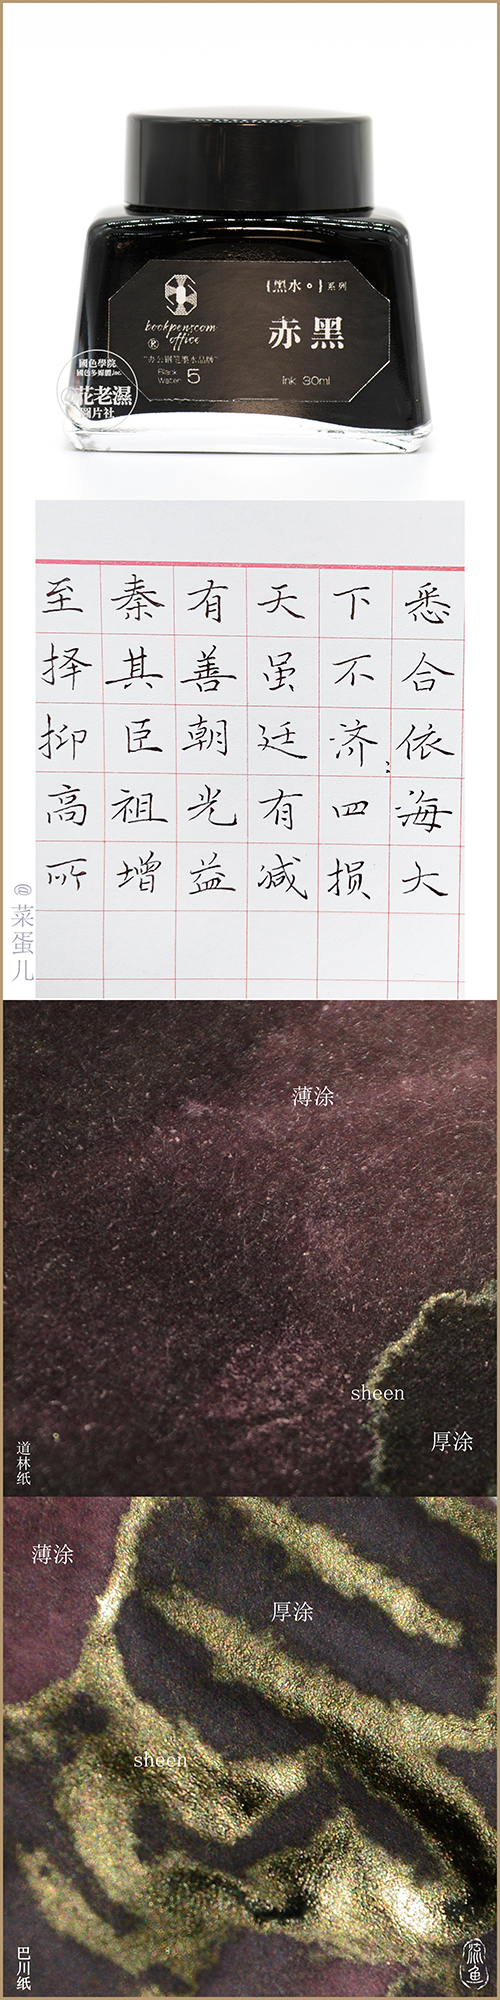 {黑水。}系列
bookpenscom
office
®
赤黑
"办公钢笔墨水品牌"
Black
Water 5
Ink 30ml
國色學院
國色多媒體.inc.
@花老濕
圖片社
至秦有天下悉
择其善虽不合
抑臣朝廷济依
高祖光有四海
所增益减损大
@菜蛋儿
薄涂
sheen
厚涂
道林纸
薄涂
厚涂
sheen
巴川纸
流鱼